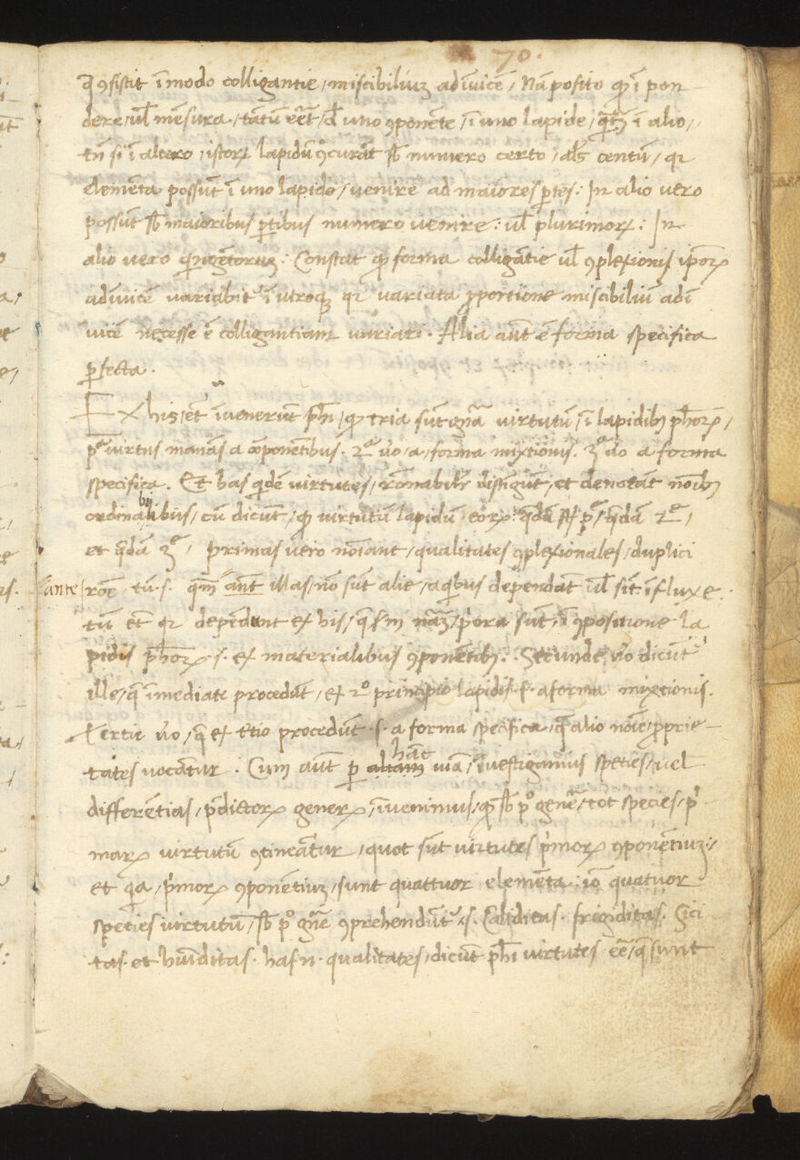 70.
q̄ ꝯsistit ī modo colligantie / miscibiliuꝫ adīvicē / Nā posito qꝫ ī pon
dere / ul̄ mēsura / tātū eēt / d̄ uno ꝯponēte / ī uno lapide / ī alio /
tn̄ si ī altero / istoꝝ lapidū ꝯcurāt sb̄ numero certo / centū / qꝛ
elemēta possūt ī uno lapide / venire ad maiores ꝑtes : In alio vero
possūt sb̄ maioribus ꝑtibus numero venire : ul̄ plurimoꝝ : In
alio vero qingētoruꝫ : Constat qꝫ forma colligātie ul̄ ꝯplexionis ip̄oꝝ
adīvicē variabit᷑ ī utroqꝫ qꝛ variata ꝓportione miscibiliū adī
vicē necesse ē colligantiam variari . Alia aūt ē forma specifica
ꝑfecta .
Ex his / et īvenerūt ph̄i / qꝫ tria sūt gn̄a virtutū / ī lapidibꝫ p̄hoꝝ /
pᵃ virtus manās a cōponētibus . 2ᵃ v̄o / a / forma mixtionis . 3ᵃ v̄o a forma
specifica . Et has qdē virtutes / rōnabilr̄ distīgūt / et denotāt noībꝫ
ordinalibus / cū dicūt / qꝫ virtutū lapidū eoꝝ : q̄dā st̄ pᵃ / q̄dā 2ᵃ /
et q̄dā 3ᵃ / Primas vero noīant / qualitates ꝯplexionales / duplici
ante / rōe tū .s. qm̄ an̄t illas / nō sūt alie / a qibus dependāt ul̄ sīt īfluxe :
tū et̄ qꝛ dependunt ex his / q̄ sm̄ nāꝫ / pͥora sūt / ī ꝯpositione la
pidis p̄hoꝝ .s. ex materialibus ꝯponētibꝫ . Secunde v̄o dicūt᷑
ille / q̄ īmediate procedūt / ex 2º principio lapidis .s. a forma mixtionis .
Tertie v̄o / q̄ ex t̄tio procedūt .s. a forma specifica / q̄ alio noīe / ꝓprie
tates vocātur . Cum aūt ꝑ altam hāc viā / īvestigamus spēties / vel
differētias / p̄dictoꝝ geneꝝ / īvenimus / qꝫ sb̄ pº gen̄e / tot species / pͥ
maꝝ virtutū ꝯtineātur / quot sūt virtutes pͥmoꝝ ꝯponētiuꝫ /
et qa / pͥmoꝝ ꝯponētiuꝫ / sunt quattuor elemēta : iō quatuor
spēties virtutū / sb̄ pº gn̄e ꝯprehendūt᷑ .s. Caliditas . frigiditas . Sici
tas . et huīditas . has .n. qualitates / dicūt ph̄i virtutes eē / q̄ sunt